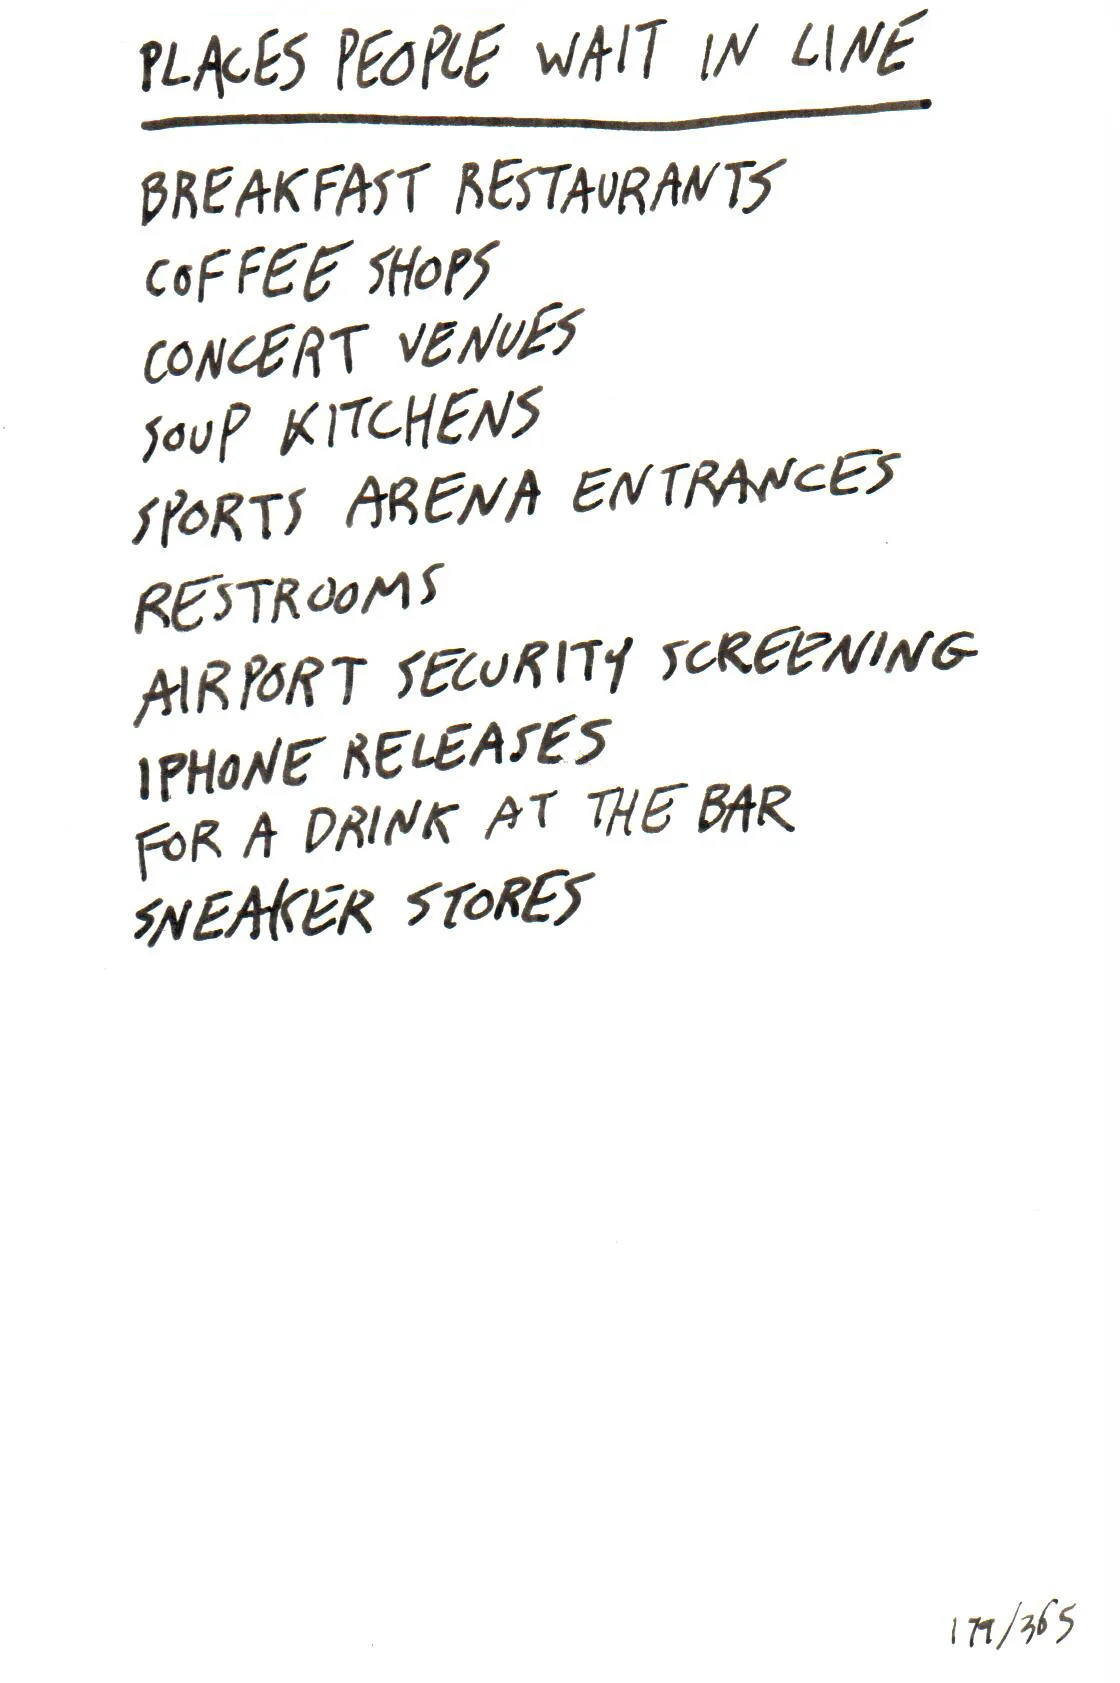 PLACES PEOPLE WAIT IN LINE
BREAKFAST RESTAURANTS
COFFEE SHOPS
CONCERT VENUES
SOUP KITCHENS
SPORTS ARENA ENTRANCES
RESTROOMS
AIRPORT SECURITY SCREENING
IPHONE RELEASES
FOR A DRINK AT THE BAR
SNEAKER STORES
179/365